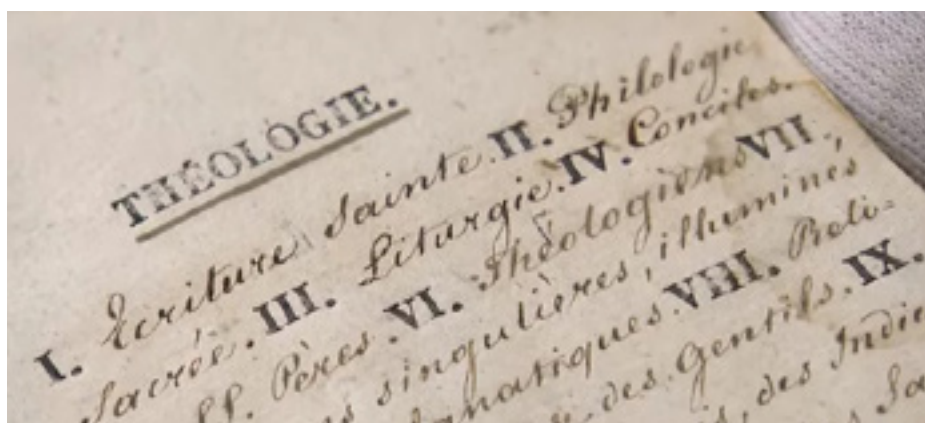 THÉOLOGIE.
I. Ecriture Sainte. II. Philologie
Sacrée. III. Liturgie. IV. Conciles.
Pères. VI. Théologiens VII.
singulières, illuminés,
VIII. Reli-
des Gentils. IX.
des